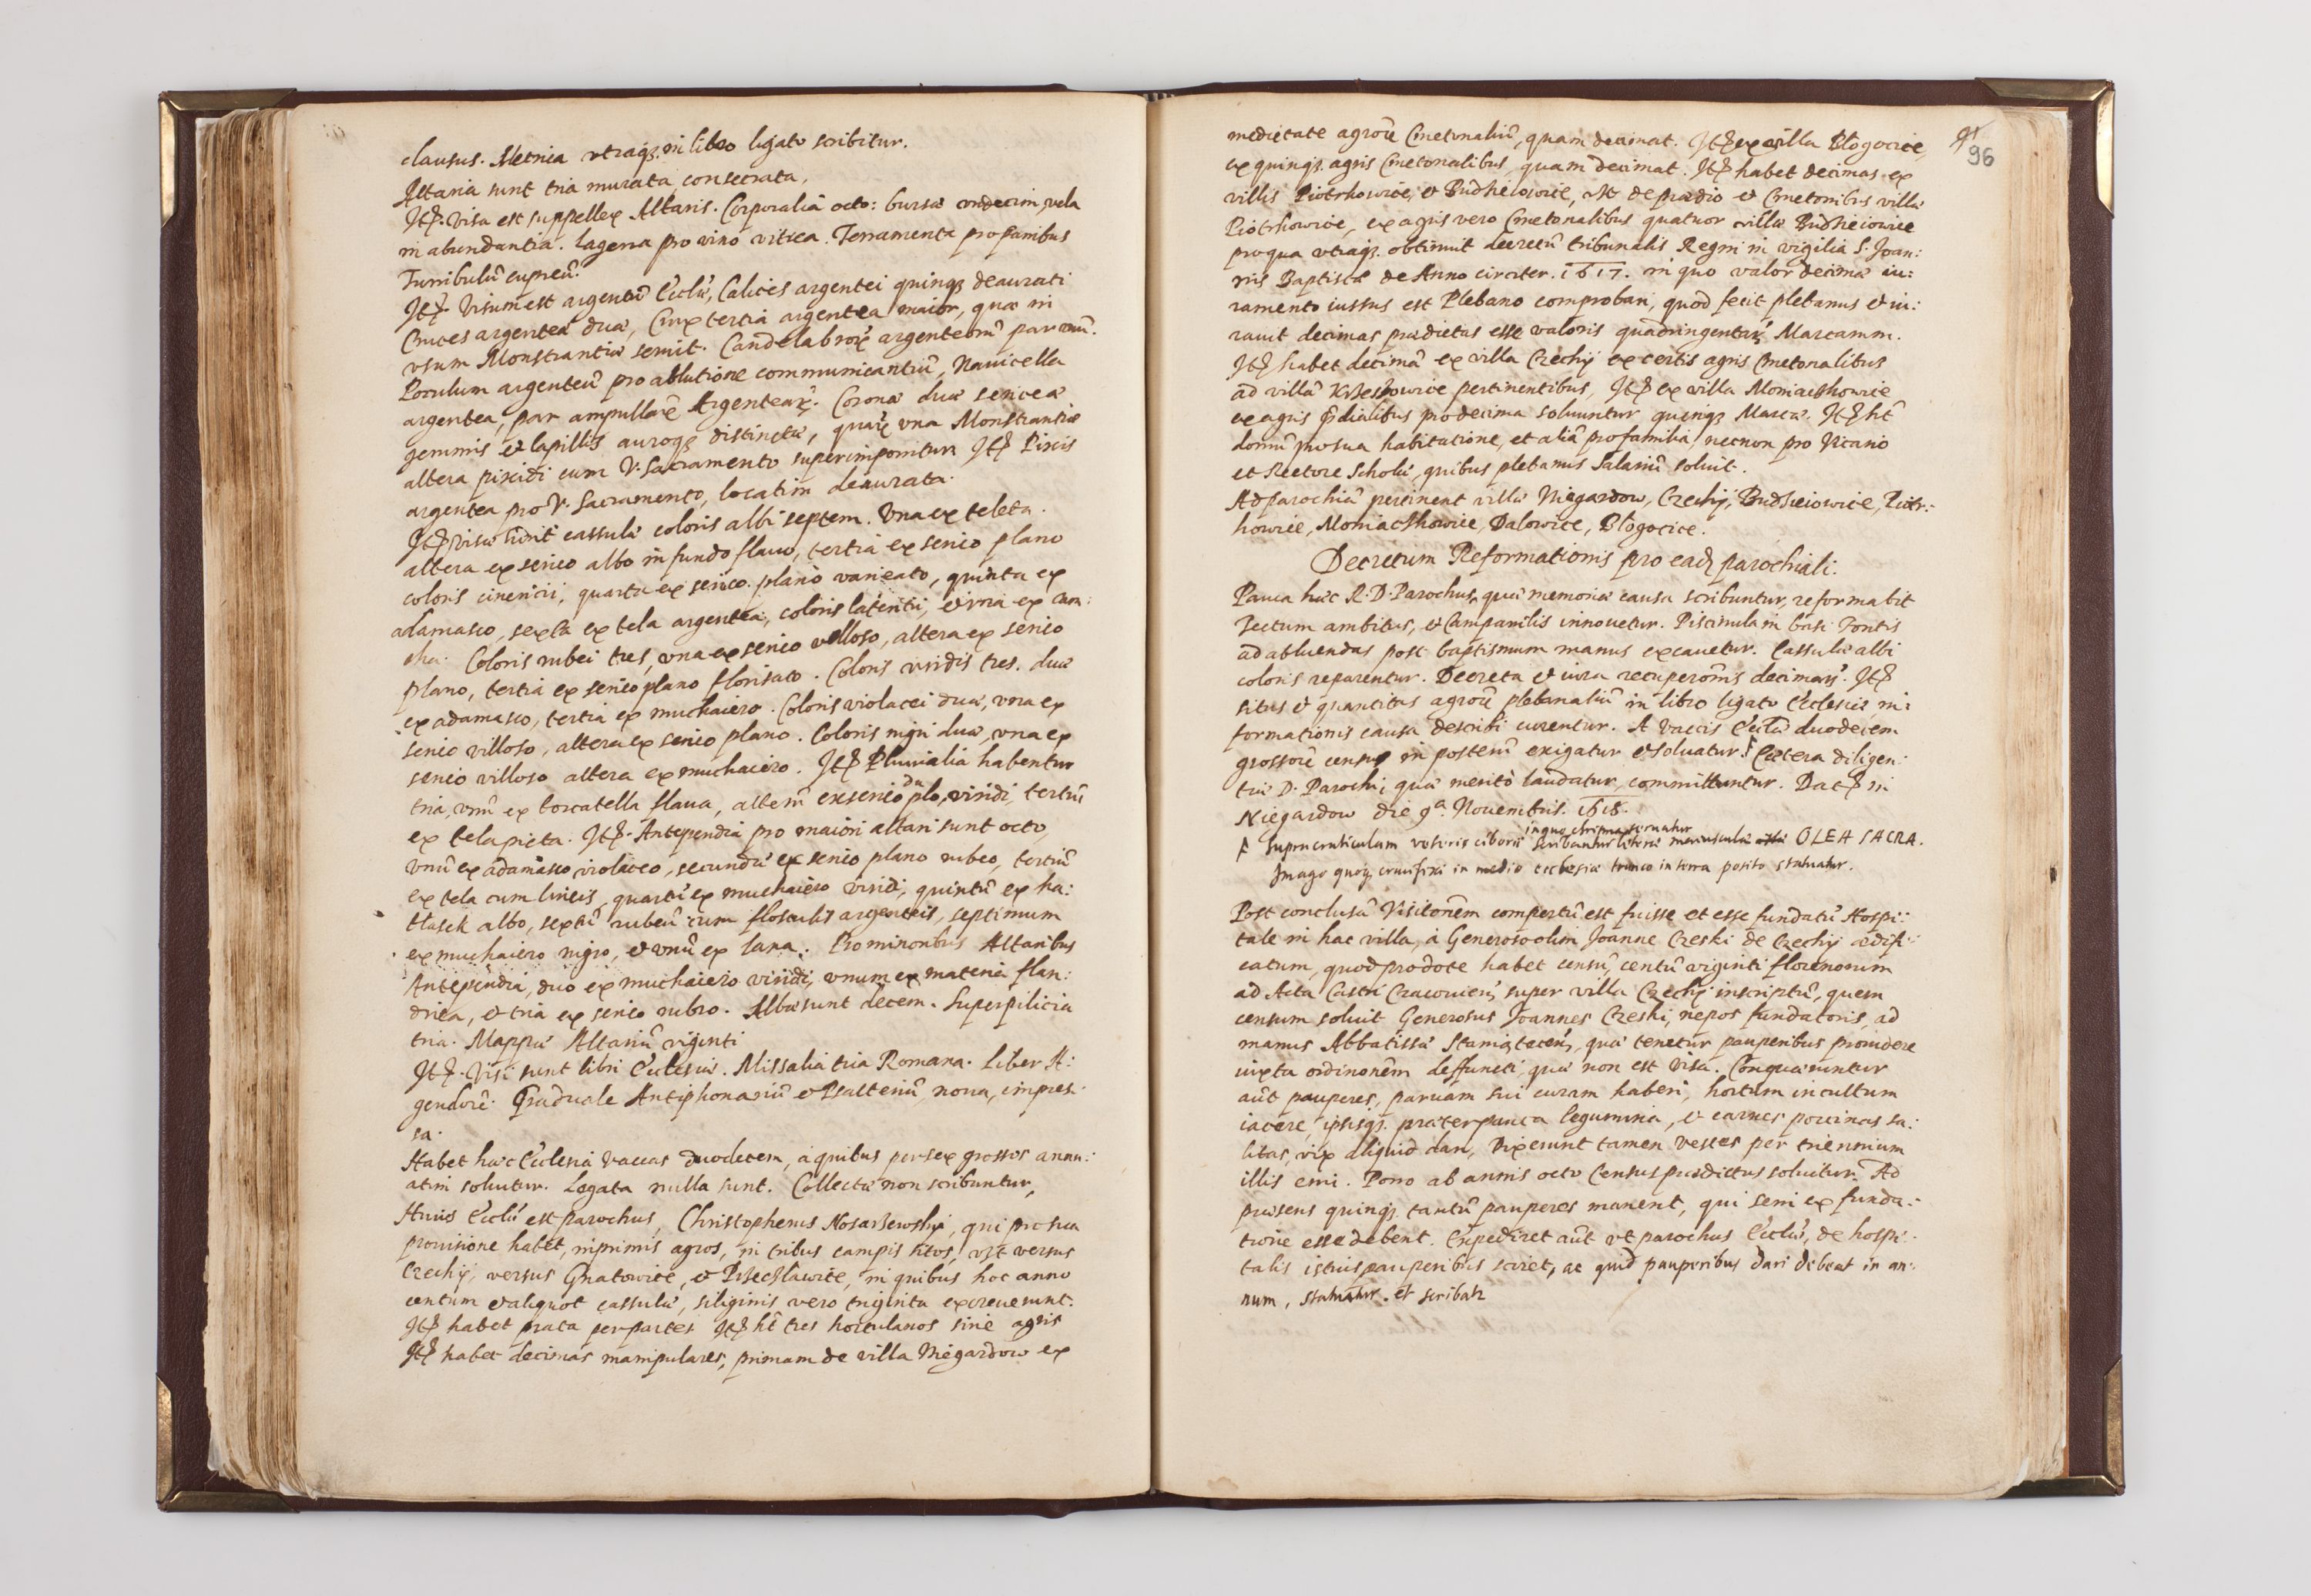 clausus. Metrica vtraq3. in libro ligato scribitur.
Altaria sunt tria murata consecrata.
Itẽ. Visa est suppellex Altaris. Corporalia octo: bursæ vndecim, vela
in abundantia. Lagena pro vino vitrea. Ferramenta pro panibus
Turribulũ cupreũ.
Itẽ. Visum est argentũ Ecclæ, Calices argentei quinq3 deaurati
Cruces argenteæ duæ, Crux tertia argentea maior, quæ in
vsum Monstrantiæ seruit. Candelabrorũ argenteorũ par vnũ.
Poculum argenteũ pro ablutione communicantiũ, Nauicella
argentea, par ampullarũ Argentearũ. Coronæ duæ sericeæ
gemmis et lapillis auroq3 distinctæ, quarũ vna Monstrantiæ
altera pixidi cum V. Sacramento superimponitur. Itẽ Pixis
argentea pro V. Sacramento, locatim deaurata.
Itẽ visæ sunt cassulæ coloris albi septem. Vna ex teleta.
altera ex serico albo in fundo flauo, tertia ex serico plano
coloris cinericii, quarta ex serico plano varieato, quinta ex
adamasco, sexta ex tela argentea, coloris lateritii, et vna ex cam:
cha. Coloris rubei tres, vna ex serico velloso, altera ex serico
plano, tertia ex serico plano florisato. Coloris viridis tres. duæ
ex adamasco, tertia ex muchaiero. Coloris violacei duæ, vna ex
serico villoso, altera ex serico plano. Coloris nigri duæ, vna ex
serico villoso altera ex muchaiero. Itẽ Pluuialia habentur
tria, vnũ ex torcatella flaua, alterũ ex serico duplo, viridi, tertiũ
ex tela picta. Itẽ. Antependia pro maiori altari sunt octo,
vnũ ex adamasco violaceo, secundũ ex serico plano rubeo, tertiũ
ex tela cum lineis, quartũ ex muchaiero viridi, quintũ ex ha:
tłasek albo, sextũ rubeũ cum flosculis argenteis, septimum
ex muchaiero nigro, et vnũ ex lana. Pro minoribus Altaribus
Antependia, duo ex muchaiero viridi, vnum ex materia flan:
drica, et tria ex serico rubro. Albæ sunt decem. Superpilicia
tria. Mappæ Altariũ viginti
Itẽ. Visi sunt libri Ecclesiæ. Missalia tria Romana. Liber A:
gendorũ. Graduale Antiphonariũ et Psalteriũ, noua, impres:
sa.
Habet hæc Ecclesia vaccas duodecem, a quibus per sex grossos annu:
atim soluitur. Legata nulla sunt. Collectæ non scribuntur,
Huius Ecclæ est parochus, Christopherus Nosarzewskj, qui pro sua
prouisione habet, inprimis agros, in tribus campis sitos, vt versus
Czechÿ, versus Gnatowice, et Przecsławice, in quibus hoc anno
centum et aliquot cassulæ, siliginis vero triginta excreuerunt.
Itẽ habet prata per partes Itẽ hẽt tres hortulanos sine agris
Itẽ habet decimas manipulares, primam de villa Niegardow ex
91
96
medietate agrorũ Cmetonaliũ, quam decimat. Itẽ ex villa Błogocice,
ex quinq3. agris Cmetonalibus, quam decimat. Itẽ habet decimas ex
villis Piotrkowice, et Budzieiowice, vt de prædio et Cmetonibus villæ
Piotrkowice, ex agris vero Cmetonalibus quatuor villæ Budzieiowice
pro qua vtraq3. obtinuit decretũ tribunalis Regni in vigilia S. Joan:
nis Baptistæ de Anno circiter. 1617. in quo valor decimæ iu:
ramento iussus est Plebano comprobari, quod fecit plebanus et iu:
rauit decimas prædictas esse valoris quadringentarũ Marcarum.
Itẽ habet decimã ex villa Czechÿ ex certis agris Cmetonalibus
ad villã Krzeszowice pertinentibus, Itẽ ex villa Moniaczkowice
ex agris p̃dialibus pro decima soluuntur quinq3 Marcæ. Itẽ hẽt
domũ pro sua habitatione, et aliã pro familia, necnon pro Vicario
et Rectore Scholæ, quibus plebanus Salariũ soluit.
Ad parochiã pertinent villæ Niegardow, Czechÿ, Budzieiowice, Piotr:
kowice, Moniaczkowice, Dalowice, Błogocice.
Decretum Reformationis pro eadẽ parochiali.
Pauca hæc R. D. Parochus, quæ memoriæ causa scribuntur, reformabit
Tectum ambitus, et Campanilis innouetur. Piscinula in basi Fontis
ad abluendas post baptismum manus excauetur. Cassulæ albi
coloris reparentur. Decreta et iura recuperõnis decimarũ. Itẽ
situs et quantitas agrorũ plebanaliũ in libro ligato Ecclesiæ in:
formationis causa describi curentur. A vaccis Ecclæ duodecem
grossorũ census in posterũ exigatur et soluatur. Cætera diligen:
tiæ D. Parochi, quæ meritò laudatur, committuntur. Datẽ in
Niegardow die 9a Nouembris. 1618.
in quo chrisma seruatur
Supra craticulam veteris ciborii scribantur literæ maiusculæ OLEA SACRA.
Imago quoq3 crucifixi in medio ecclesiæ trunco in terra posito statuatur.
Post conclusã Visitõnem compertũ est fuisse et esse fundatũ Hospi:
tale in hac villa, à Generoso olim Joanne Czeski de Czechÿ ædifi:
catum, quod pro dote habet censũ, centũ viginti florenorum
ad Acta Castri Cracouien̄, super villa Czechÿ inscriptũ, quem
censum soluit Generosus Joannes Czeski, nepos fundatoris, ad
manus Abbatissæ Staniątecen̄, quæ tenetur pauperibus prouidere
iuxta ordinõnem deffuncti, quæ non est visa. Conquæruntur
aũt pauperes, paruam sui curam haberi, hortum incultum
iacere, ipsisq3. præter pauca legumina, et carnes porcinas sa:
litas, vix aliquid dari, Dixerunt tamen vestes per triennium
illis emi. Porro ab annis octo Census prædictus soluitur. Ad
præsens quinq3. tantũ pauperes manent, qui seni ex funda:
tione esse debent. Expediret aũt vt parochus Ecclæ, de hospi:
talis istius pauperibus sciret, ac quid pauperibus dari debeat in an:
num, statuatur. et scribatr